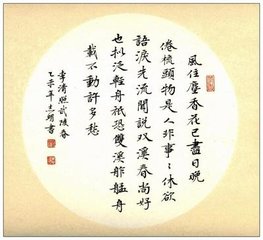 風住塵香花已盡日晚
倦梳頭物是人非事〻休欲
語淚先流聞說双溪春尚好
也拟泛輕舟祇恐雙溪舴艋舟
載不動許多愁
李清照武陵春
乙未年志書